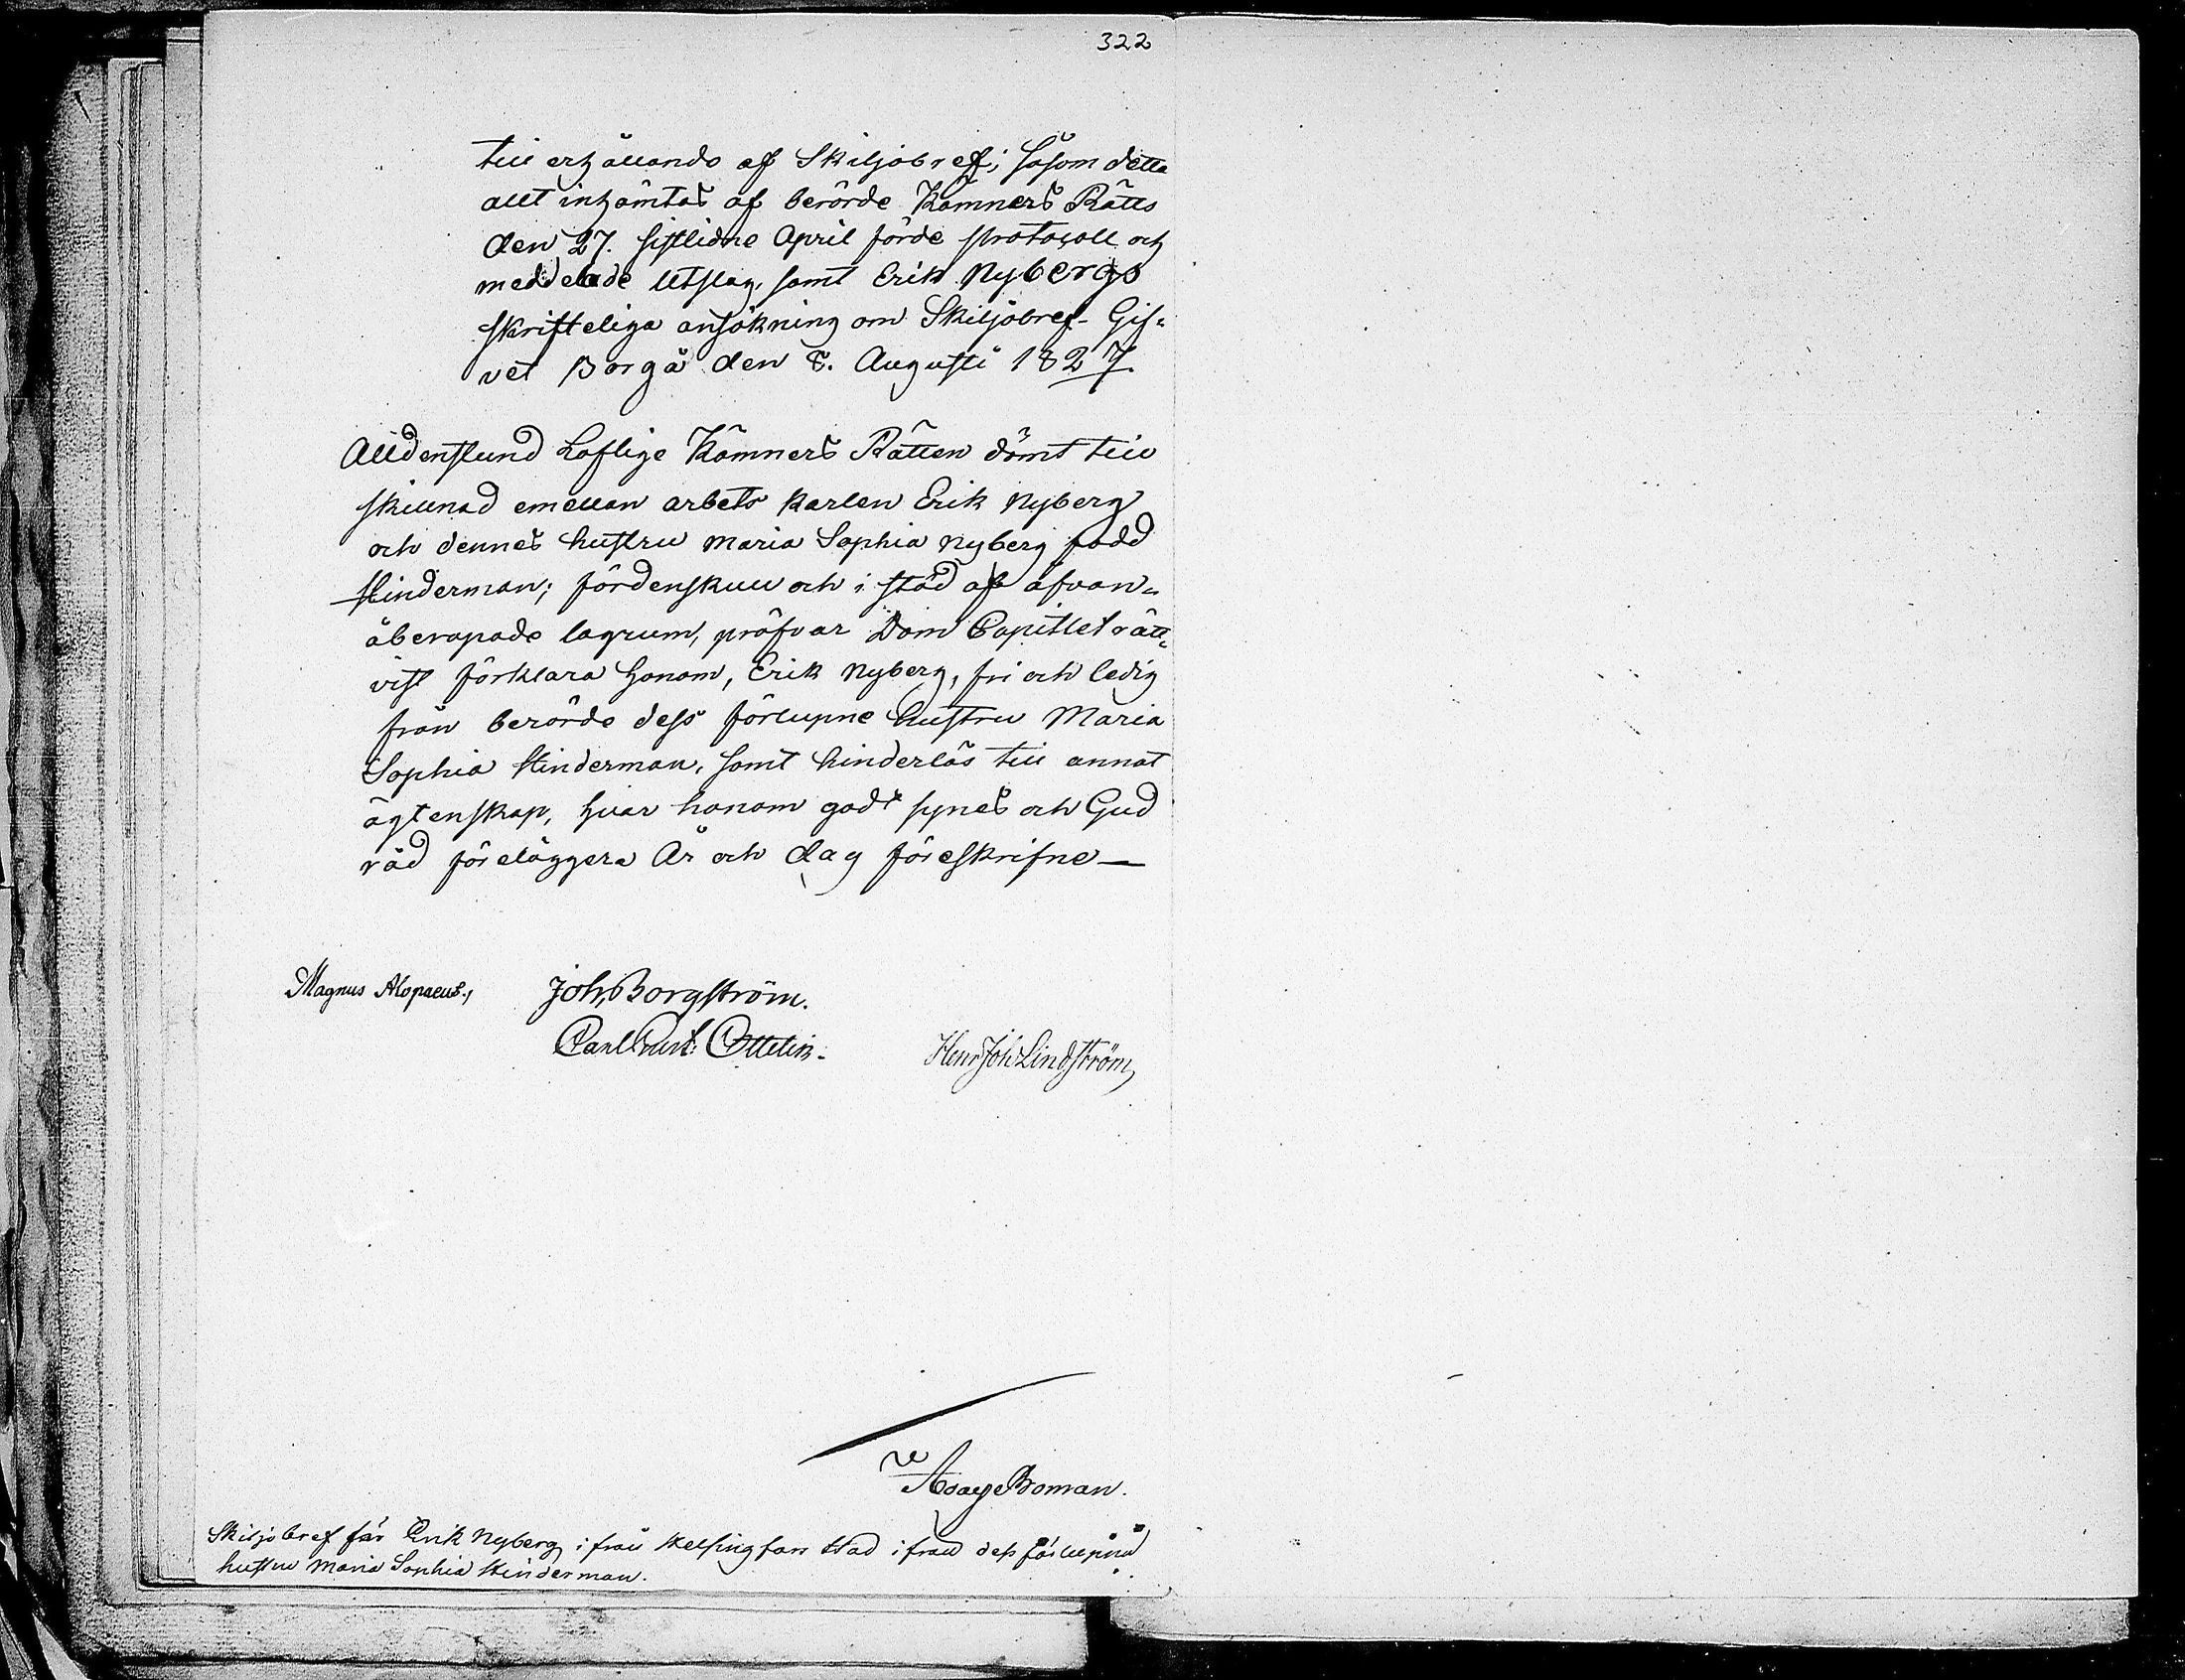 322
till erhållande af Skiljobref; såsom detta
allt inhämtas af berörde Kämners Rätts
den 27. sistlidne April förde protocoll och
meddelade Utslag, samt Erik Nybergs
skrifteliga ansökning om Skiljobref. Gif-
vet Borgå den 8. Augusti 1827.
Alldenstund Loflige Kämners Rätten dömt till
skillnad emellan arbets karlen Erik Nyberg
och dennes hustru Maria Sophia Nyberg född
Hinderman; fördenskull och i stöd af åfvan-
åberopade lagrum, pröfvar Dom Capitlet rätt-
vist förklara honom, Erik Nyberg, fri och ledig
från berörde dess förlupne hustru Maria
Sophia Hinderman, samt hinderlös till annat
ägtenskap, hvar honom godt synes och Gud
råd förelägger. År och dag föreskrifne —
Magnus Alopaeus.,
Joh, Borgström.
Carl Ottelin.
Henr Joh Lindström
Boman.
Skiljobref för Erik Nyberg ifrån Helsingfors Stad ifrån dess förlupna
hustru Maria Sophia Hinderman.